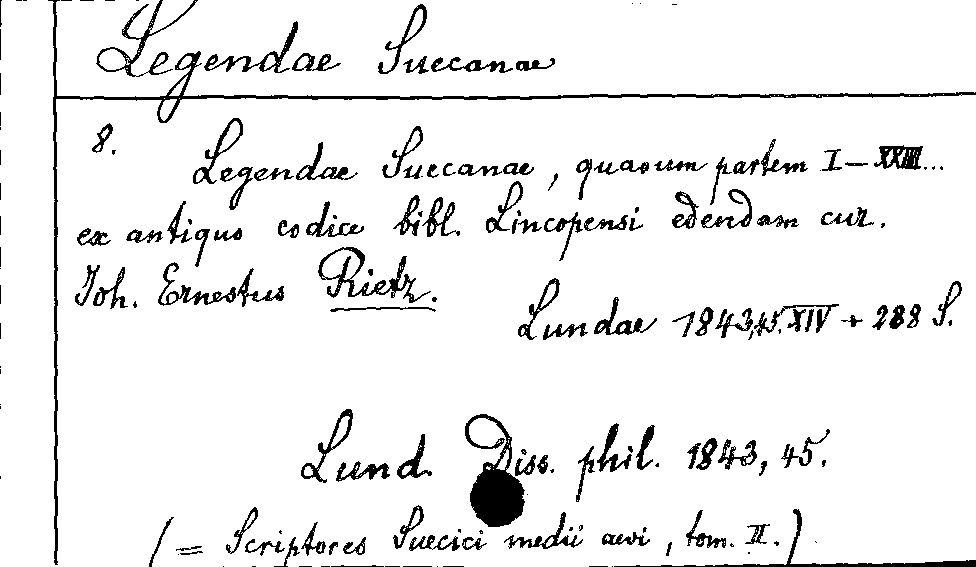 Legendae Suecanae
8.
Legendae Suecanae, quarum partem I–XXIII...
ex antiquo codice bibl. Lincopensi edendam cur.
Joh. Ernestus Rietz.
Lundae 1843,45. XIV + 288 S.
Lund. Diss. phil. 1843, 45.
(= Scriptores Suecici medii aevi, tom. II.)